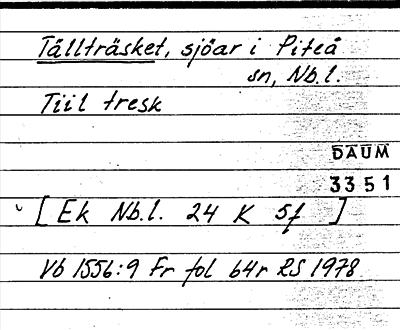 Tällträsket, sjöar i Piteå
sn, Nb.l.
Tiil tresk
DAUM
3351
[ Ek Nb.l. 24 K 5f ]
Vb 1556:9 Fr fol 64r RS 1978